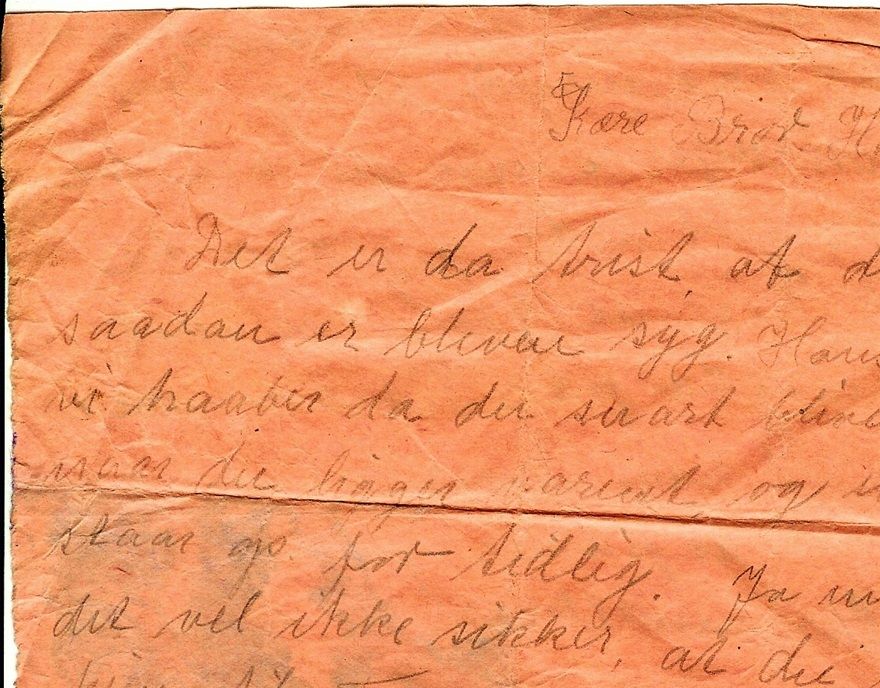 Kære Bror H
Det er da trist, at d
saadan er bleven syg. Hans
vi haaber da du snart blive
naar du ligger varmt, og i
staar op for tidlig. Ja nu
det vel ikke sikker, at du